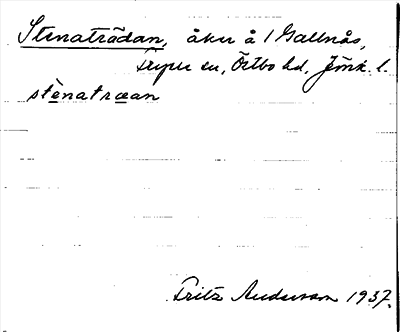 Stenaträdan, åker å 1 Gallnås,
sn, Östbo hd, Jönk. l.
stènatræan
Fritz Andersson 1937.